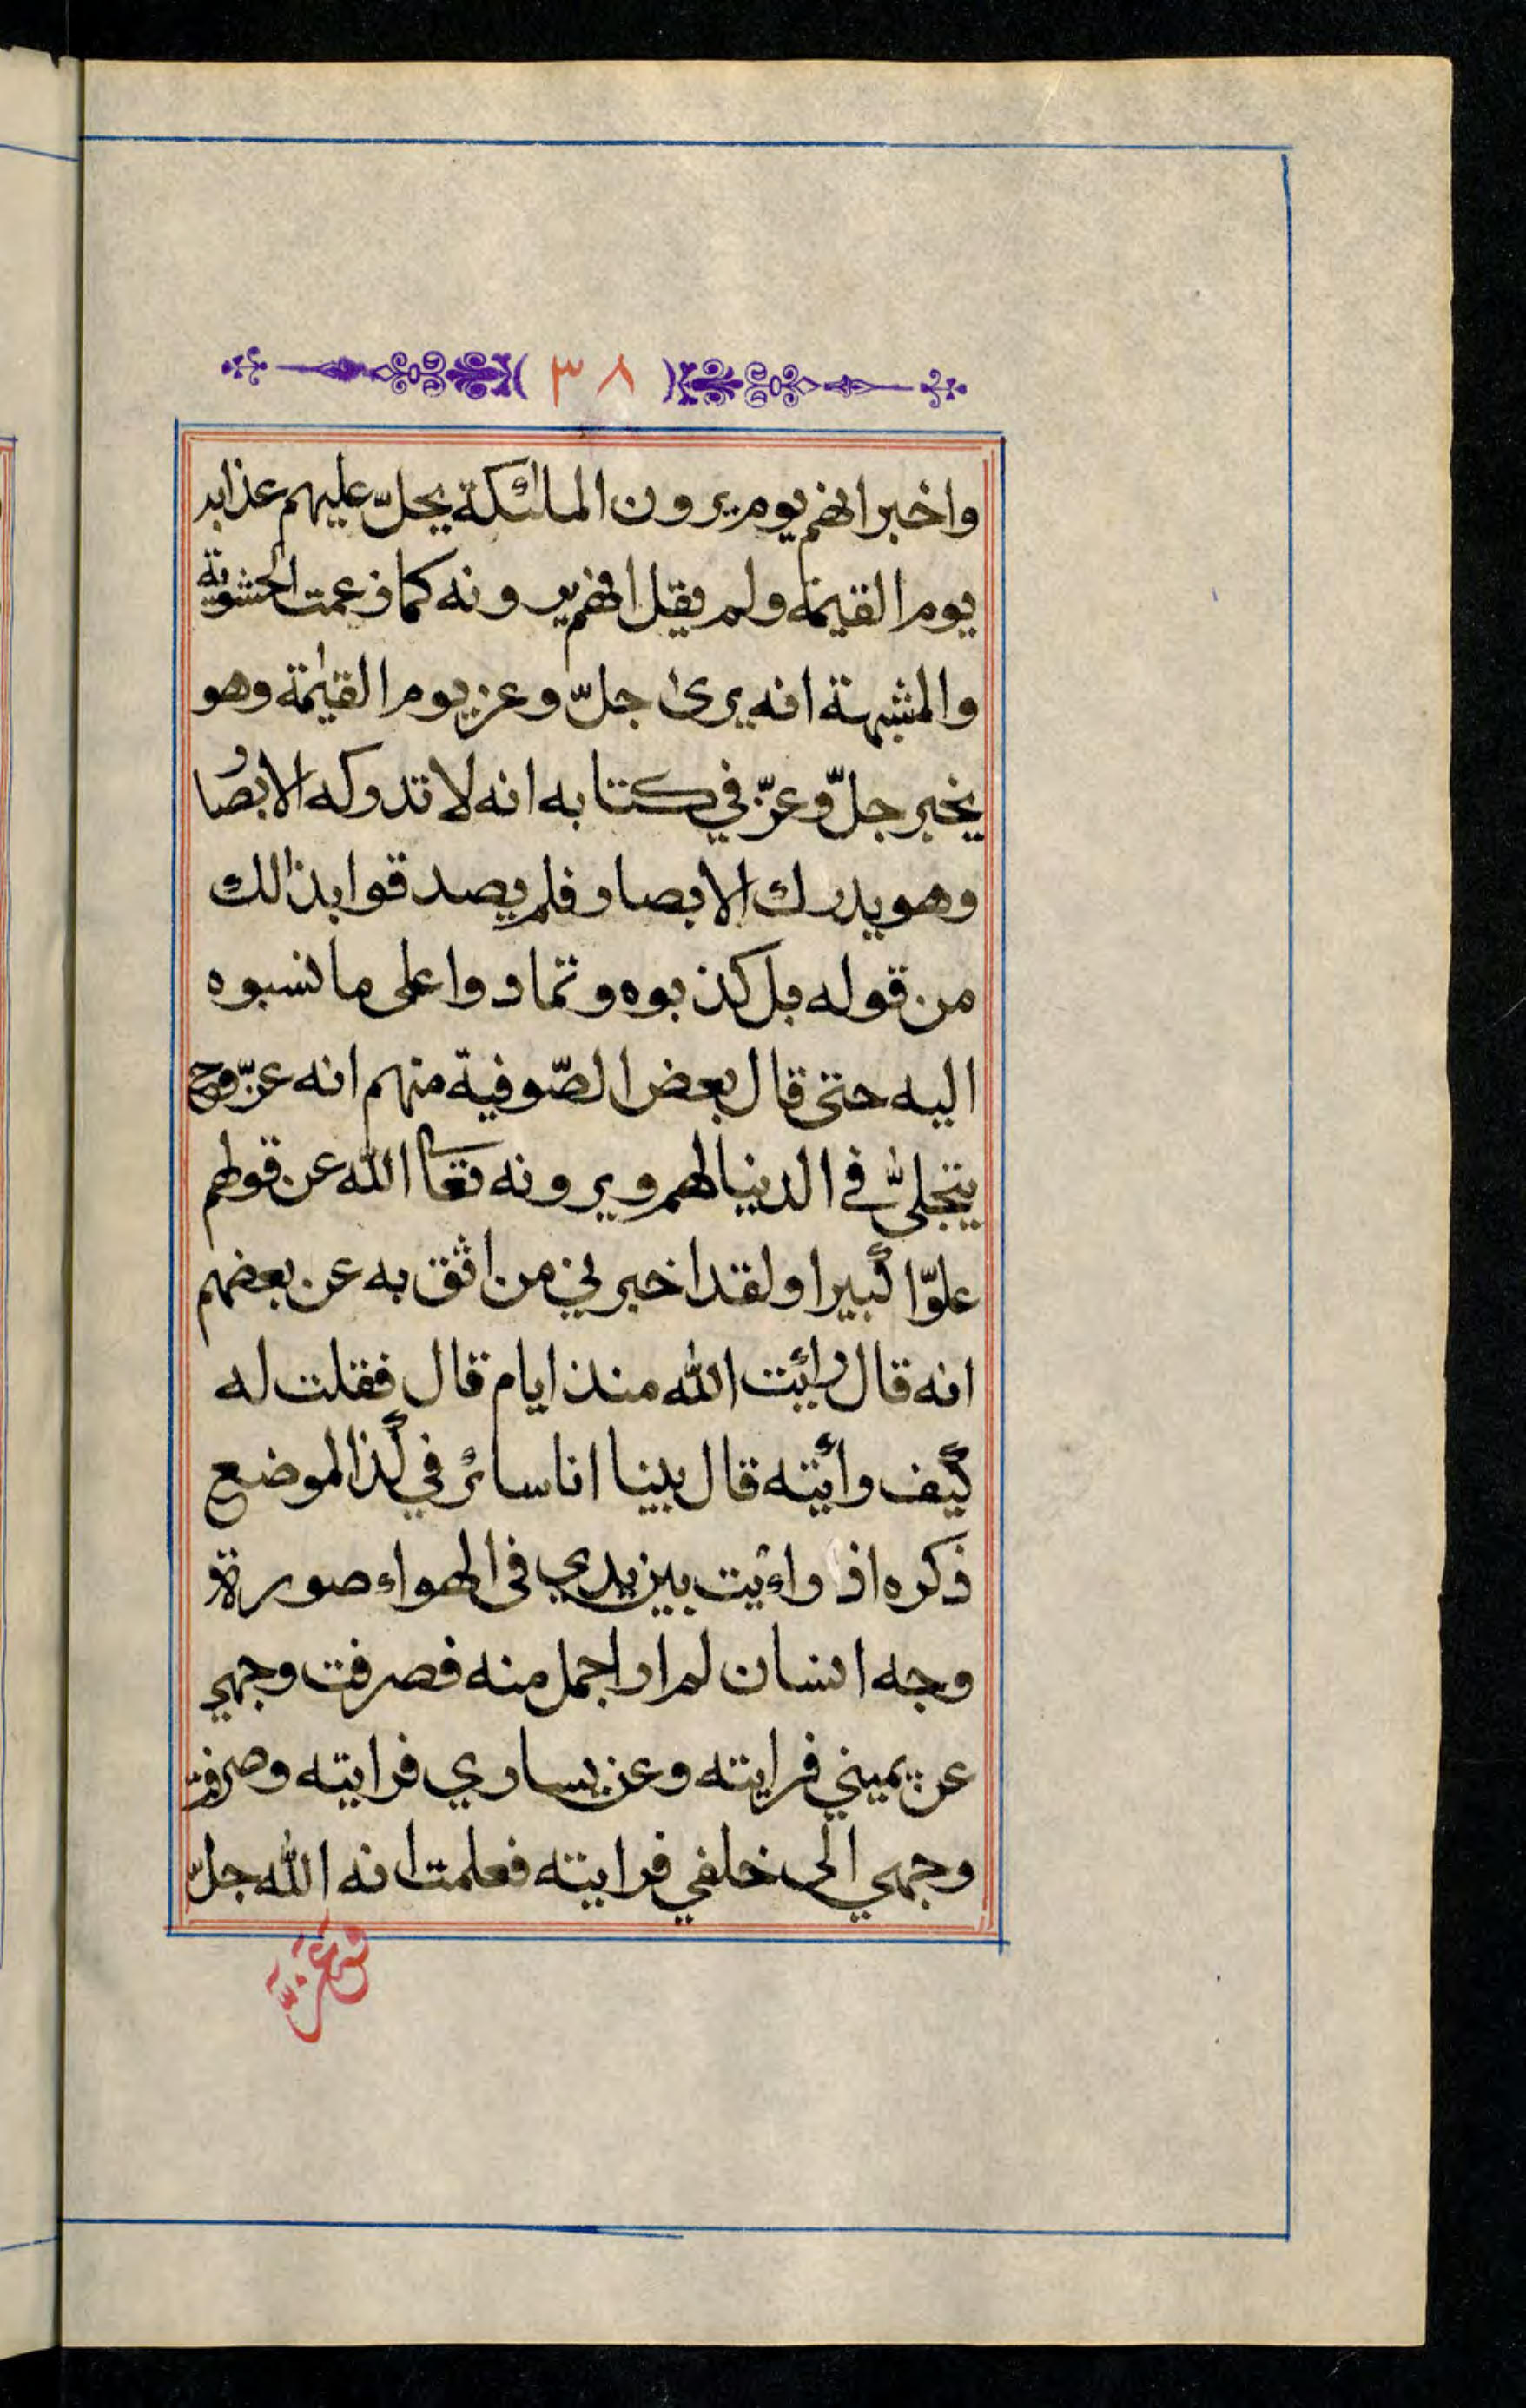 ٣٨
واخبر انهم يوم يرون الملئكة يحلّ عليهم عذابه
يوم القيمة ولم يقل انهم يرونه كما زعمت الحشوية
والمشبهة انه يرى جلّ وعز يوم القيمة وهو
يخبر جلّ وعزّ في كتابه انه لا تدركه الابصار
وهو يدرك الابصار فلم يصدقوا بذالك
من قوله بل كذبوه وتمادوا على ما نسبوه
اليه حتى قال بعض الصّوفية منهم انه عزّ وج
يتجلىّ في الدنيا لهم ويرونه تعا الله عن قولهم
علوّا كبيرا ولقد اخبرني من اثق به عن بعضهم
انه قال رائيت الله منذ ايام قال فقلت له
كيف رأيته قال بينا انا سائر في كذا لموضع
ذكره اذ راءيت بين يدي في الهواء صورة
وجه انسان لم ار اجمل منه فصرفت وجهي
عن يميني فرايته وعن يساري فرايته وصرفت
وجهي الى خلفي فرايته فعلمت انه الله جلّ
وعزّ